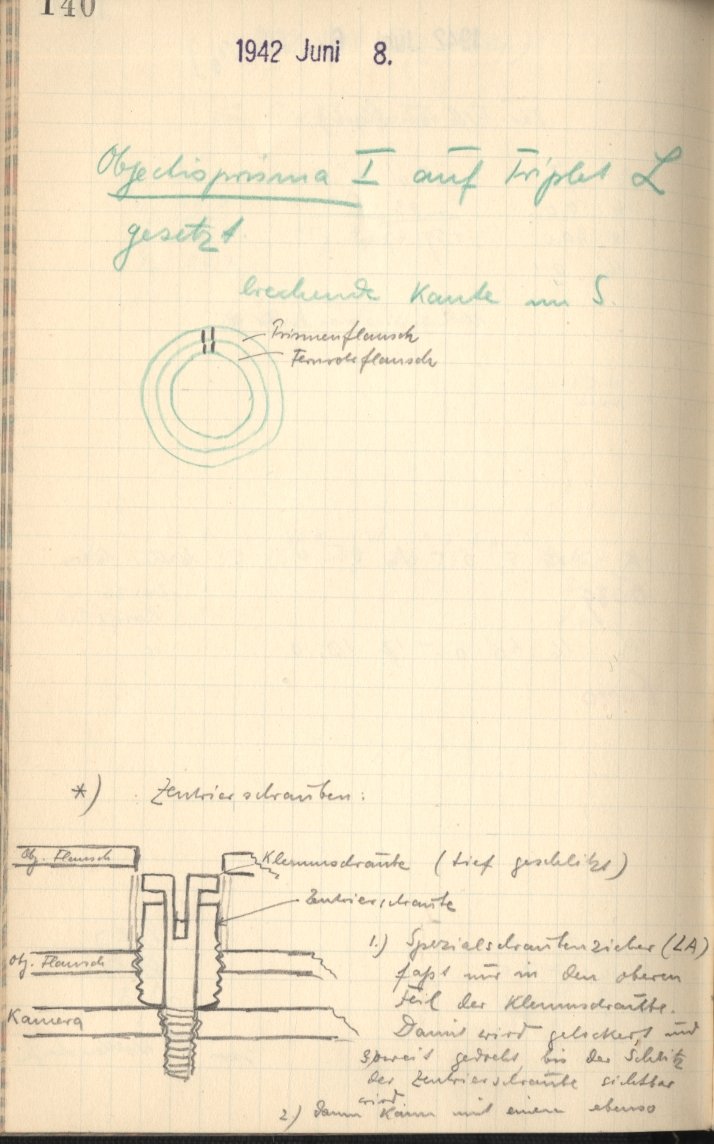 140
1942 Juni 8.
Objectivprisma I auf Triplet L
gesetzt
brechende Kante im S.
Prismenflansch
Fernrohrflansch
*) Zentrierschrauben:
Obj. Flansch
Klemmschraube (tief geschlitzt)
Zentrierschraube
Obj. Flansch
Kamera
1.) Spezialschraubenzieher (LA)
faßt nur in den oberen
Teil der Klemmschraube.
Damit wird gelockert und
soweit gedreht, bis der Schlitz
der Zentrierschraube sichtbar
wird
2.) Dann kann mit einem ebenso